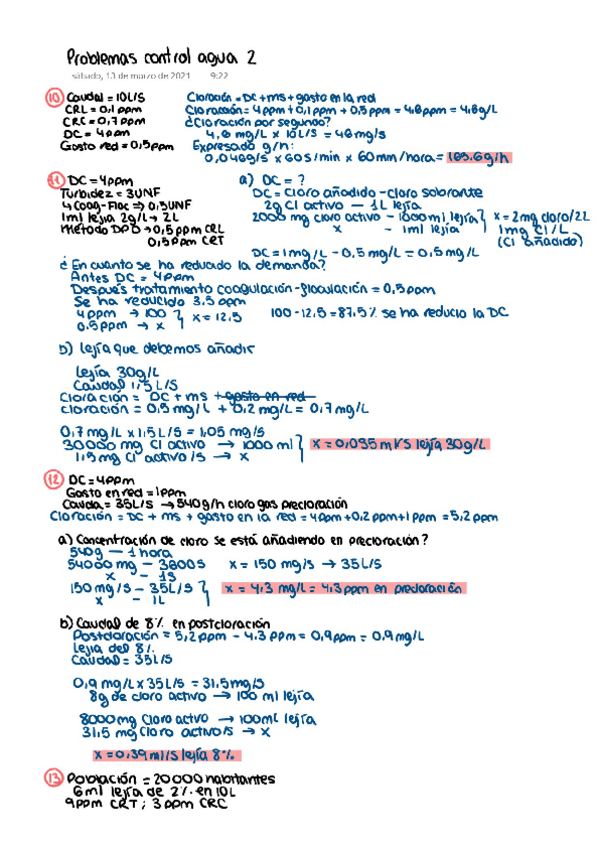 Problemas control agua 2
sábado, 13 de marzo de 2021 9:22
10 Caudal = 10L/S
CRL = 0,1 ppm
CRC = 0,7 ppm
DC = 4ppm
Gasto red = 0,5ppm
Cloración = DC + ms + gasto en la red
Cloración = 4ppm + 0,1 ppm + 0,5 ppm = 4,6ppm = 4,6g/L
¿Cloración por segundo?
4,6 mg/L x 10L/S = 46mg/s
Expresado g/h:
0,046g/s x 60s/min x 60mm/hora = 165.6g/h
11 DC = 4ppm
Turbidez = 3UNF
↳ Coag-Floc => 0,5UNF
1ml lejia 2g/L → 2L
Método DPD → 0,5 ppm CRL
0,5ppm CRT
a) DC = ?
DC = Cloro añadido - cloro sobrante
2g Cl activo — 1L lejía
2000 mg cloro activo - 1000ml lejía } x = 2mg cloro/2L
x - 1ml lejía 1mg Cl/L
(Cl añadido)
DC = 1mg/L - 0,5 mg/L = 0,5 mg/L
¿En cuanto se ha reducido la demanda?
Antes DC = 4ppm
Después tratamiento coagulación-floculación = 0,5ppm
Se ha reducido 3.5 ppm
4ppm → 100 } x = 12.5 100-12.5 = 87.5% se ha reducio la DC
0.5ppm → x
b) Lejía que debemos añadir
Lejía 30g/L
Caudal 1,5 L/S
Cloración = DC + ms + gasto en red
Cloración = 0,5 mg/L + 0,2 mg/L = 0,7 mg/L
0,7 mg/L x 1,5L/S = 1,05 mg/s
30000 mg Cl activo → 1000 ml } x = 0,035 ml/s lejía 30g/L
1,5mg Cl activo/s → x
12 DC = 4ppm
Gasto en red = 1ppm
Cauda = 35L/S → 540g/h cloro gas precloración
Cloración = DC + ms + gasto en la red = 4ppm + 0,2 ppm + 1ppm = 5,2ppm
a) Concentración de cloro se está añadiendo en precloración?
540g — 1 hora
54000 mg — 3800s x = 150 mg/s → 35L/S
x - 1s
150mg/s - 35L/S } x = 4.3 mg/L = 4.3ppm en precloración
x - 1L
b) Caudal de 8% en postcloración
Postcloración = 5,2ppm - 4.3 ppm = 0,9ppm = 0.9mg/L
Lejía del 8%
Caudal = 35L/S
0,9 mg/L x 35L/S = 31.5mg/s
8g de cloro activo → 100 ml lejía
8000mg cloro activo → 100mL lejía
31,5 mg cloro activo/s → x
x = 0,39 ml/s lejía 8%
13 Población = 20000 habitantes
6ml lejía de 2% en 10L
9ppm CRT ; 3 ppm CRC